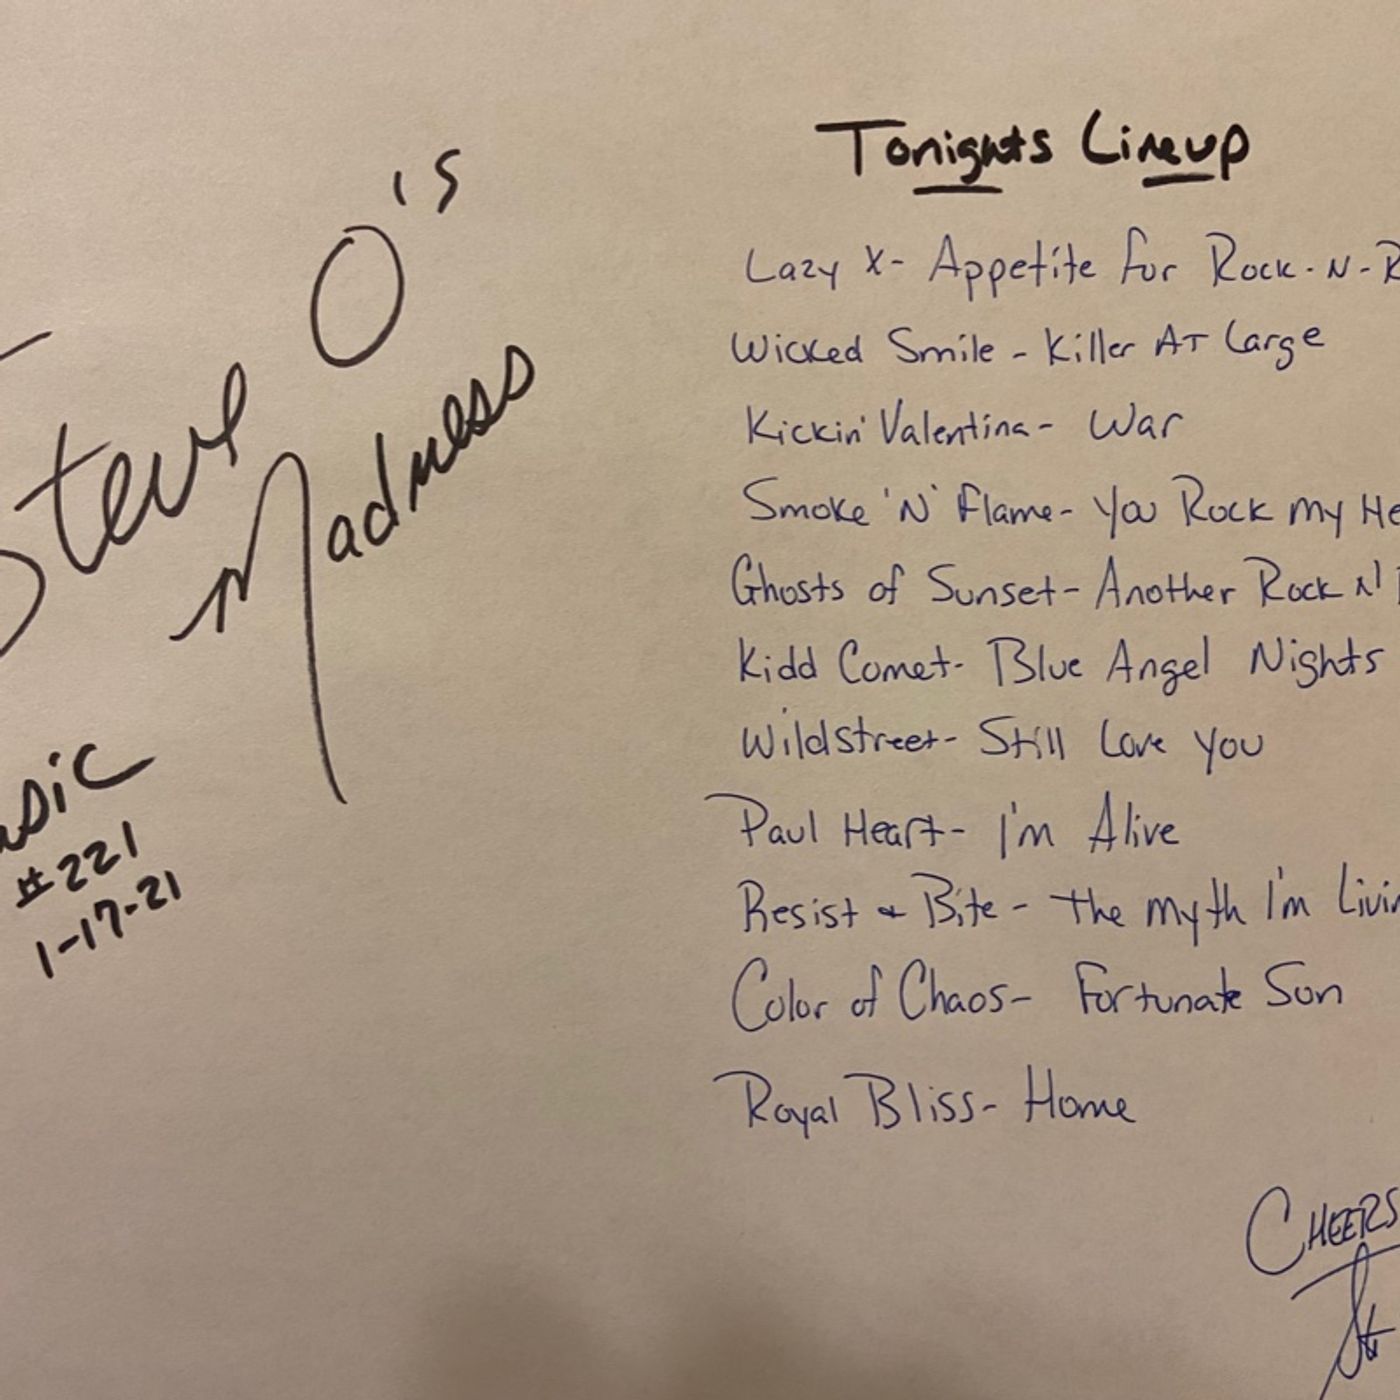 Steve O's
Madness
#221
1-17-21
Tonights Lineup
Lazy X- Appetite for Rock-N-R
Wicked Smile - Killer At Large
Kickin' Valentina- War
Smoke 'N' Flame- You Rock My He
Ghosts of Sunset- Another Rock N'
Kidd Comet- Blue Angel Nights
Wildstreet- Still Love You
Paul Heart- I'm Alive
Resist & Bite - The Myth I'm Livin
Color of Chaos- Fortunate Son
Royal Bliss- Home
Cheers